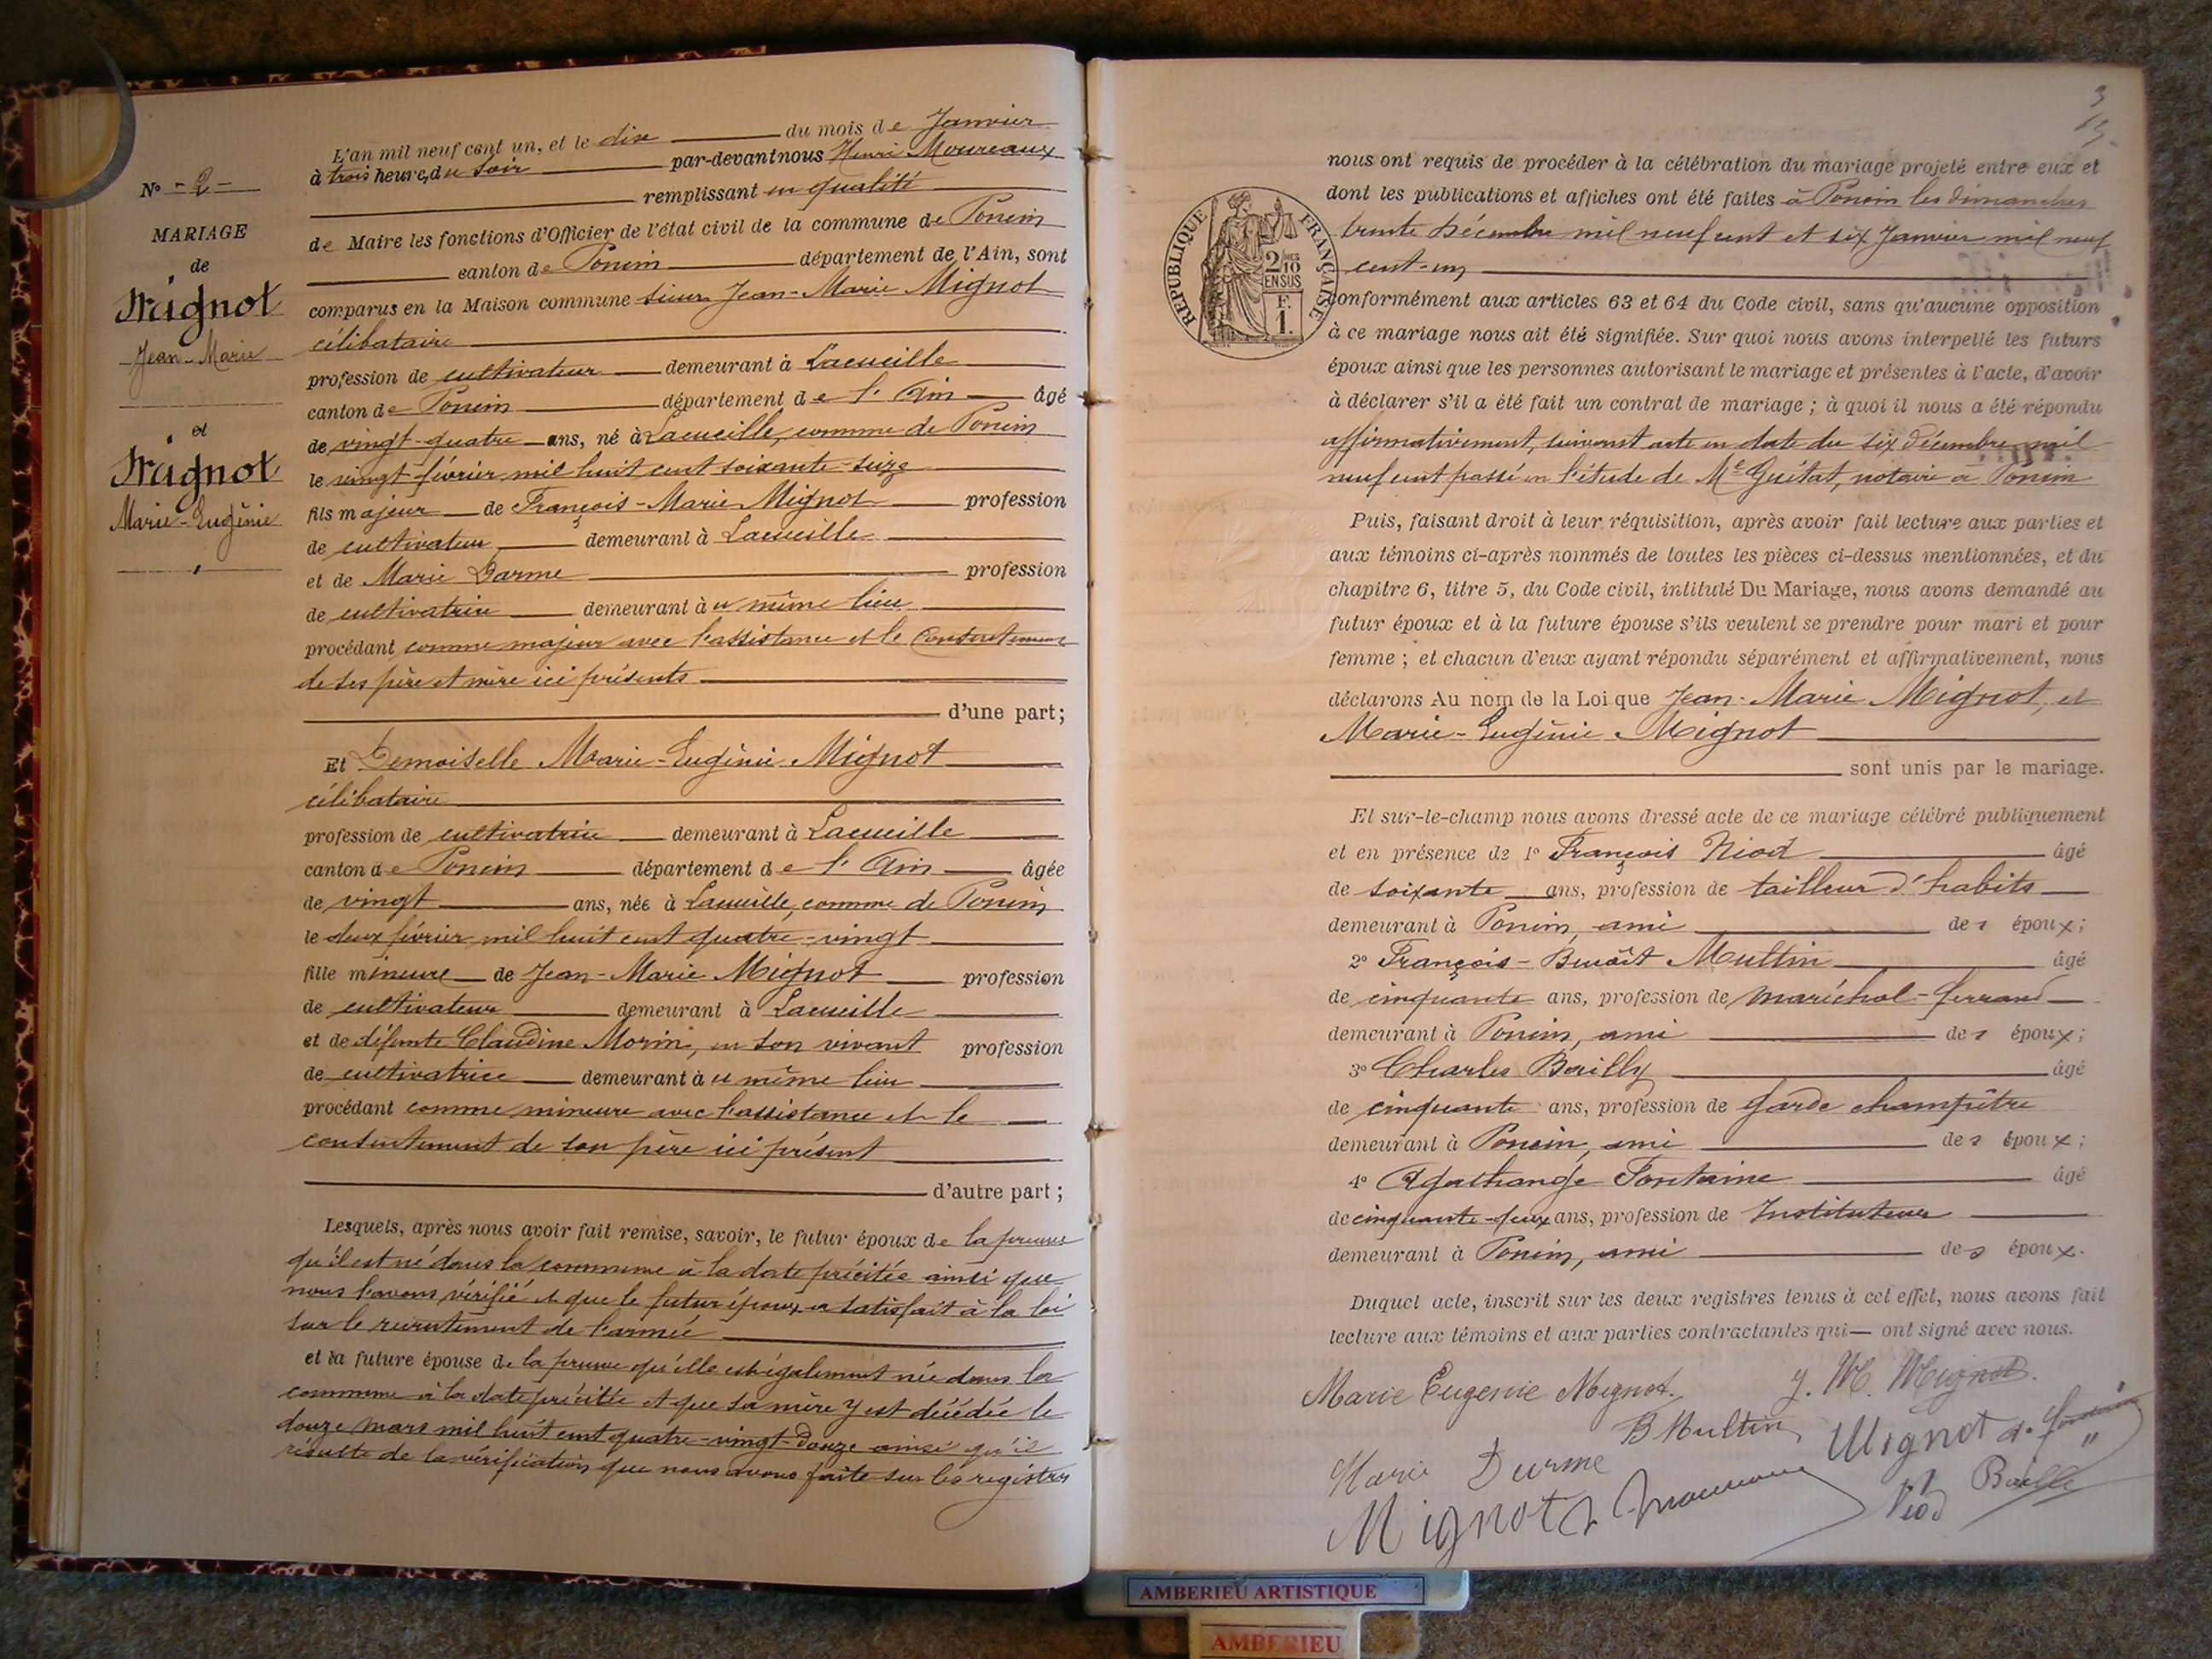 N° - 2 -
MARIAGE
de
Mignot
Jean-Marie
et
Mignot
Marie-Eugénie
L'an mil neuf cent un, et le dix du mois de Janvier
à trois heures du soir par-devant nous Henri Moureaux
remplissant en qualité
de Maire les fonctions d'Officier de l'état civil de la commune de Poncin
canton de Poncin département de l'Ain, sont
comparus en la Maison commune sieur Jean-Marie Mignot
célibataire
profession de cultivateur demeurant à Lacueille
canton de Poncin département de l'Ain âgé
de vingt-quatre ans, né à Lacueille, commune de Poncin
le vingt février mil huit cent soixante-seize
fils majeur de François-Marie Mignot profession
de cultivateur demeurant à Lacueille
et de Marie Darme profession
de cultivatrice demeurant à u même lieu
procédant comme majeur avec l'assistance et le consentement
de ses père et mère ici présents
d'une part;
Et Demoiselle Marie-Eugénie Mignot
célibataire
profession de cultivatrice demeurant à Lacueille
canton de Poncin département de l'Ain âgée
de vingt ans, née à Lacueille, commune de Poncin
le deux février mil huit cent quatre-vingt
fille mineure de Jean-Marie Mignot profession
de cultivateur demeurant à Lacueille
et de défunte Claudine Morin, en son vivant profession
de cultivatrice demeurant à u même lieu
procédant comme mineure avec l'assistance et le
consentement de son père ici présent
d'autre part;
Lesquels, après nous avoir fait remise, savoir, le futur époux de la preuve
qu'il est né dans la commune à la date précitée ainsi que
nous l'avons vérifié et que le futur époux a satisfait à la loi
sur le recrutement de l'armée
et la future épouse de la preuve qu'elle est également née dans la
commune à la date précitée et que sa mère y est décédée le
douze mars mil huit cent quatre-vingt-douze ainsi qu'il
résulte de la vérification que nous avons faite sur les registres
3
nous ont requis de procéder à la célébration du mariage projeté entre eux et
dont les publications et affiches ont été faites à Poncin les dimanches
trente Décembre mil neuf cent et six Janvier mil neuf
cent-un
RÉPUBLIQUE FRANÇAISE
2/10 EN SUS
1 F.
conformément aux articles 63 et 64 du Code civil, sans qu'aucune opposition
à ce mariage nous ait été signifiée. Sur quoi nous avons interpellé les futurs
époux ainsi que les personnes autorisant le mariage et présentes à l'acte, d'avoir
à déclarer s'il a été fait un contrat de mariage; à quoi il nous a été répondu
affirmativement, suivant acte en date du six décembre mil
neuf cent passé en l'étude de Me Guitat, notaire à Poncin
Puis, faisant droit à leur réquisition, après avoir fait lecture aux parties et
aux témoins ci-après nommés de toutes les pièces ci-dessus mentionnées, et du
chapitre 6, titre 5, du Code civil, intitulé Du Mariage, nous avons demandé au
futur époux et à la future épouse s'ils veulent se prendre pour mari et pour
femme; et chacun d'eux ayant répondu séparément et affirmativement, nous
déclarons Au nom de la Loi que Jean-Marie Mignot, et
Marie-Eugénie Mignot
sont unis par le mariage.
Et sur-le-champ nous avons dressé acte de ce mariage célébré publiquement
et en présence de 1° François Niod âgé
de soixante ans, profession de tailleur d'habits
demeurant à Poncin, ami des époux;
2° François-Benoît Multin âgé
de cinquante ans, profession de maréchal-ferrand
demeurant à Poncin, ami des époux;
3° Charles Bailly âgé
de cinquante ans, profession de garde champêtre
demeurant à Poncin, ami des époux;
4° Agathange Fontaine âgé
de cinquante-deux ans, profession de Instituteur
demeurant à Poncin, ami des époux.
Duquel acte, inscrit sur les deux registres tenus à cet effet, nous avons fait
lecture aux témoins et aux parties contractantes qui ont signé avec nous.
Marie Eugenie Mignot. J. M. Mignot.
B Multin Mignot a. Fontaine
Marie Durme Bailly
Mignot Niod
AMBERIEU ARTISTIQUE
AMBERIEU